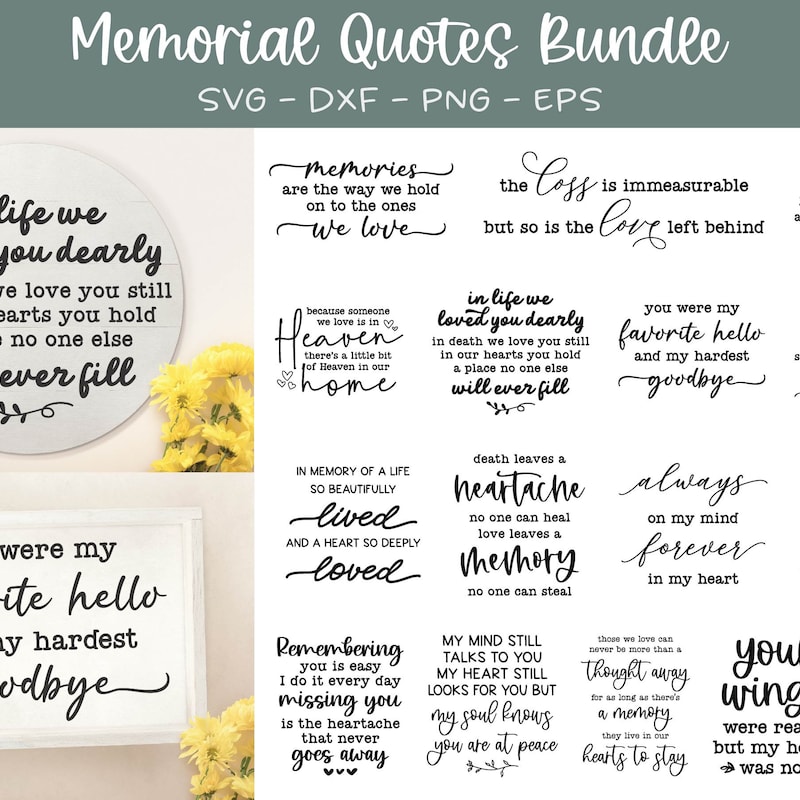 Memorial Quotes Bundle
SVG - DXF - PNG - EPS
life we
you dearly
we love you still
hearts you hold
no one else
ever fill
were my
hello
hardest
memories
are the way we hold
on to the ones
we love
the loss is immeasurable
but so is the love left behind
because someone
we love is in
Heaven
there's a little bit
of Heaven in our
home
in life we
loved you dearly
in death we love you still
in our hearts you hold
a place no one else
will ever fill
you were my
favorite hello
and my hardest
goodbye
IN MEMORY OF A LIFE
SO BEAUTIFULLY
lived
AND A HEART SO DEEPLY
loved
death leaves a
heartache
no one can heal
love leaves a
memory
no one can steal
always
on my mind
forever
in my heart
Remembering
you is easy
I do it every day
missing you
is the heartache
that never
goes away
MY MIND STILL
TALKS TO YOU
MY HEART STILL
LOOKS FOR YOU BUT
my soul knows
you are at peace
those we love can
never be more than a
thought away
for as long as there's
a memory
they live in our
hearts to stay
your
wing
were rea
but my he
was no